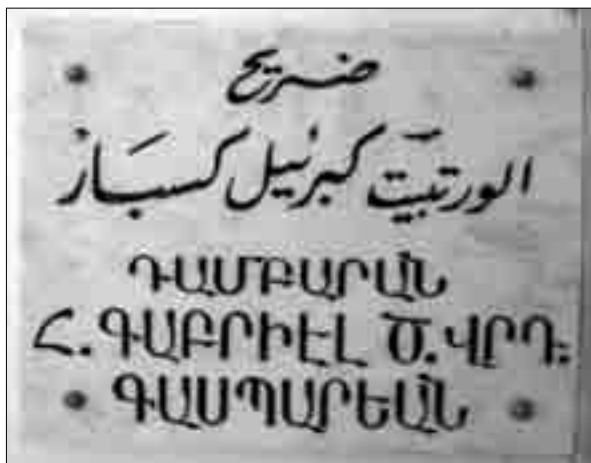 ضريح
الورتبيت كبرئيل كسبار
ԴԱՄԲԱՐԱՆ
Հ. ԳԱԲՐԻԷԼ Ծ. ՎՐԴ.
ԳԱՍՊԱՐԵԱՆ